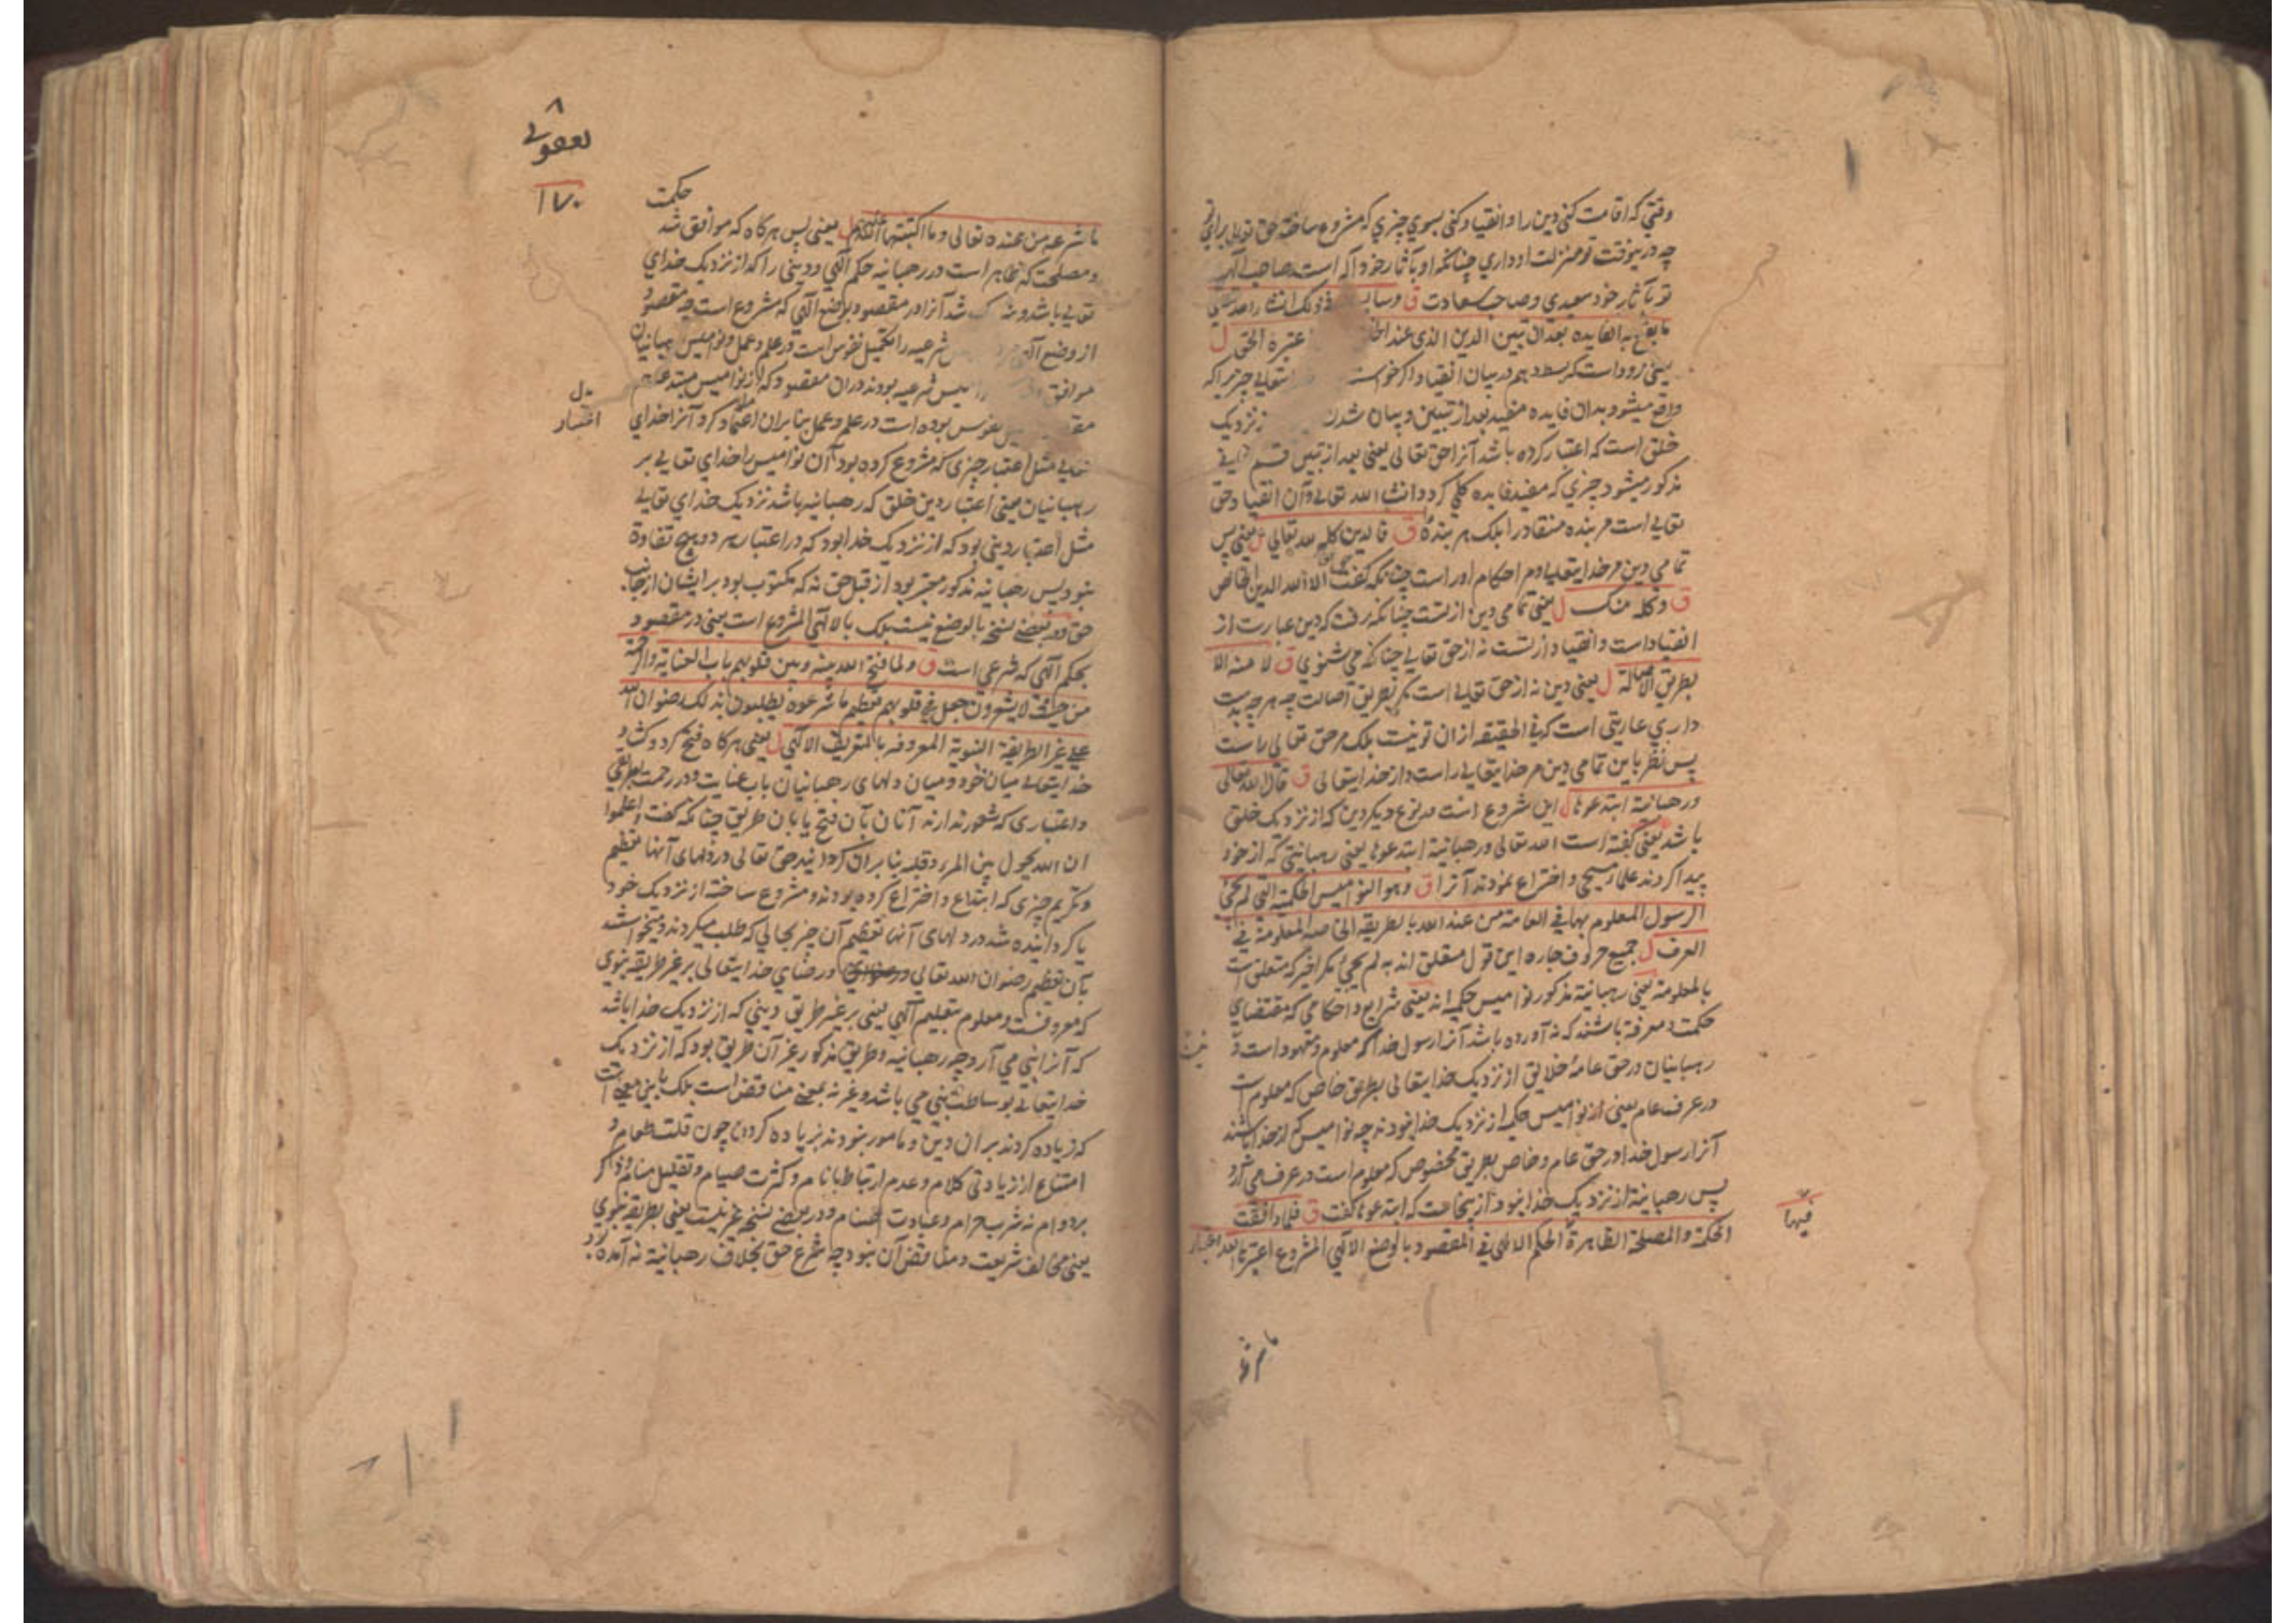 وقتي که اقامت کني دين را و انقياد کني بسوي چيزي که مشروع ساخته حق تعالي براي تو
چه درينوقت تو منزلت او داري چنانکه او بآثار خود اله است صاحب الهيه
تو بآثار خود سعيدي و صاحب سعادت ق وسا في ذلک انشاء الله تعالي
ما يقع به الفايده بعد ان تبين الدين الذي عند اعتبره الحق ل
يعني زود است که بسط دهم در بيان انقياد اگر خواسته تعالي چيزيرا که
واقع ميشود بدان فايده مفيد بعد از تبيين و بيان شدن نزديک
خلق است که اعتبار کرده باشد آنرا حق تعالي يعني بعد از تبيين قسم
مذکور ميشود چيزي که مفيد فايده کلي گردد انشاء الله تعالي و آن انقياد حق
تعالي است مر بنده منقاد را بلک هر بنده ق فالدين کله لله تعالي ل يعني پس
تمامي دين مر خدايتعالي و احکام او راست چنانکه گفت الا لله الدين الخالص
ق و کله منک ل يعني تمامي دين از تست چنانکه رفت که دين عبارت از
انقياد است و انقياد از تست نه از حق تعالي چنانکه مي شنوي ق لا منه الا
بطريق الاصالة ل يعني دين نه از حق تعالي است مگر بطريق اصالت چه هر چه بدست
داري عاريتي است که في الحقيقه از ان تو نيست بلک مر حق تعالي راست
پس نظر باين تمامي دين مر خدايتعالي راست و از خدايتعالي ق قال الله تعالي
و رهبانية ابتدعوها ل اين شروع است در نوع ديگر دين که از نزديک خلق
باشد يعني گفته است الله تعالي و رهبانية ابتدعوها يعني رهبانيتي که از خود
پيدا کردند علماء مسيحي و اختراع نمودند آنرا ق وهو النواميس الحکمية التي لم يجئ
الرسول المعلوم بها في العامة من عند الله بالطريقة الخاصة المعلومة في
العرف ل جميع حروف جاره اين قول متعلق اند به لم يجئ مگر اخير که متعلق است
بالمعلومة يعني رهبانية مذکور نواميس حکميه اند يعني شرايع و احکامي که مقتضاي
حکمت و معرفة باشند که نه آورده باشد آنرا رسول خدا که معلوم و معهود است
رهبانيان در حق عامه خلايق از نزديک خدايتعالي بطريق خاص که معلوم است
در عرف عام يعني از نواميس حکميه از نزديک خدا نبودند چه نواميس که از خدا باشند
آنرا رسول خدا در حق عام و خاص بطريق مخصوص که معلوم است در عرف مي آرد
پس رهبانية از نزديک خدا نبود از ينجاست که ابتدعوها گفت ق فلما وافقت
الحکمة والمصلحة الظاهرة الحکم الالهي في المقصود بالوضع الالهي المشروع اعتبرها الله اعتبار
فيها
ما شرع
٨
يعقوبي
١٧٠
حکمت
ما شرعه من عنده تعالي وما اکتبها الله عليهم ل يعني پس هرگاه که موافق شد
و مصلحت که ظاهر است در رهبانيه حکم الهي و ديني را که از نزديک خداي
تعالي باشد و شد آنرا در مقصود بوضع الهي که مشروع است چه مقصود
از وضع الهي شرعيه را تکميل نفوس است در علم و عمل و نواميس رهبانيان
موافق نواميس شرعيه بودند در ان مقصود که از نواميس مبتدعه هم
نفوس بوده است در علم و عمل بنا بران اعتماد کرد آنرا خداي
بدل
اعتبار
تعالي مثل اعتبار چيزي که مشروع کرده بود آن نواميس را خداي تعالي بر
رهبانيان يعني اعتبار دين خلق که رهبانيه باشد نزديک خداي تعالي
مثل اعتبار ديني بود که از نزديک خدا بود که در اعتبار هر دو هيچ تفاوة
نبود پس رهبانيه مذکور معتبر بود از قبل حق نه که مکتوب بود بر ايشان از جانب
حق و در بعضي نسخه بالوضع نيست بلک بالالهي المشروع است يعني در مقصود
بحکم الهي که شرعي است ق ولما فتح الله بينه وبين قلوبهم باب العناية والرحمة
من حيث لا يشعرون جعل في قلوبهم تعظيم ما شرعوه يطلبون بذلک رضوان الله
علي غير الطريقة النبوية المعروفة بالتعريف الالهي ل يعني هرگاه فتح کرد و گشاد
خدايتعالي ميان خود و ميان دلهاي رهبانيان باب عنايت و در رحمت بطريقي
و اعتباري که شعور ندارند آنان بآن فتح يا بان طريق چنانکه گفت و اعلموا
ان الله يحول بين المرء و قلبه بنا بران گردانيد حق تعالي در دلهاي آنها تعظيم
و تکريم چيزي که ابتداع و اختراع کرده بودند و مشروع ساخته از نزديک خود
يا گردانيده شد در دلهاي آنها تعظيم آن چيز بحالي که طلب ميکردند و ميخواستند
بآن تعظيم رضوان الله تعالي و رضاي خدايتعالي بر غير طريقه نبوي
که معروفست و معلوم بتعليم الهي يعني بر غير طريق ديني که از نزديک خدا باشد
که آنرا نبي مي آرد چه رهبانيه و طريق مذکور غير آن طريق بود که از نزديک
خدايتعالي بوساطت نبي مي باشد و غير نه بمعني مناقض است بلک باين معني است
که زياده کردند بر ان دين و مامور نبودند بزياده کردن چون قلت طعام و
امتناع از زيادتي کلام و عدم ارتباط بانام و کثرت صيام و تقليل منام و ذکر
بر دوام نه شرب حرام و عبادت اصنام و در بعضي نسخه غير نيست يعني بطريقه نبوي
يعني مخالف شريعت و مناقض آن نبود چه شرع حق بخلاف رهبانية نه آمده بود